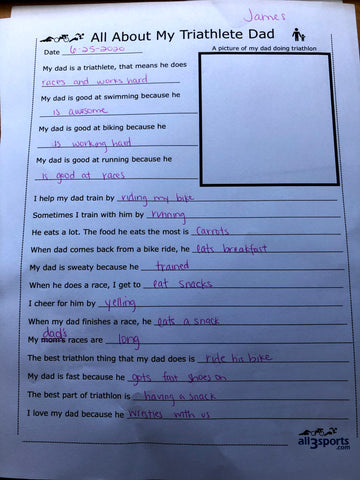 James
All About My Triathlete Dad
Date 6-25-2020
A picture of my dad doing triathlon
My dad is a triathlete, that means he does
races and works hard
My dad is good at swimming because he
is awesome
My dad is good at biking because he
is working hard
My dad is good at running because he
is good at races
I help my dad train by riding my bike
Sometimes I train with him by running
He eats a lot. The food he eats the most is carrots
When dad comes back from a bike ride, he eats breakfast
My dad is sweaty because he trained
When he does a race, I get to eat snacks
I cheer for him by yelling
When my dad finishes a race, he eats a snack
dad's
My mom's races are long
The best triathlon thing that my dad does is ride his bike
My dad is fast because he gots fast shoes on
The best part of triathlon is having a snack
I love my dad because he wrestles with us
all3sports.com